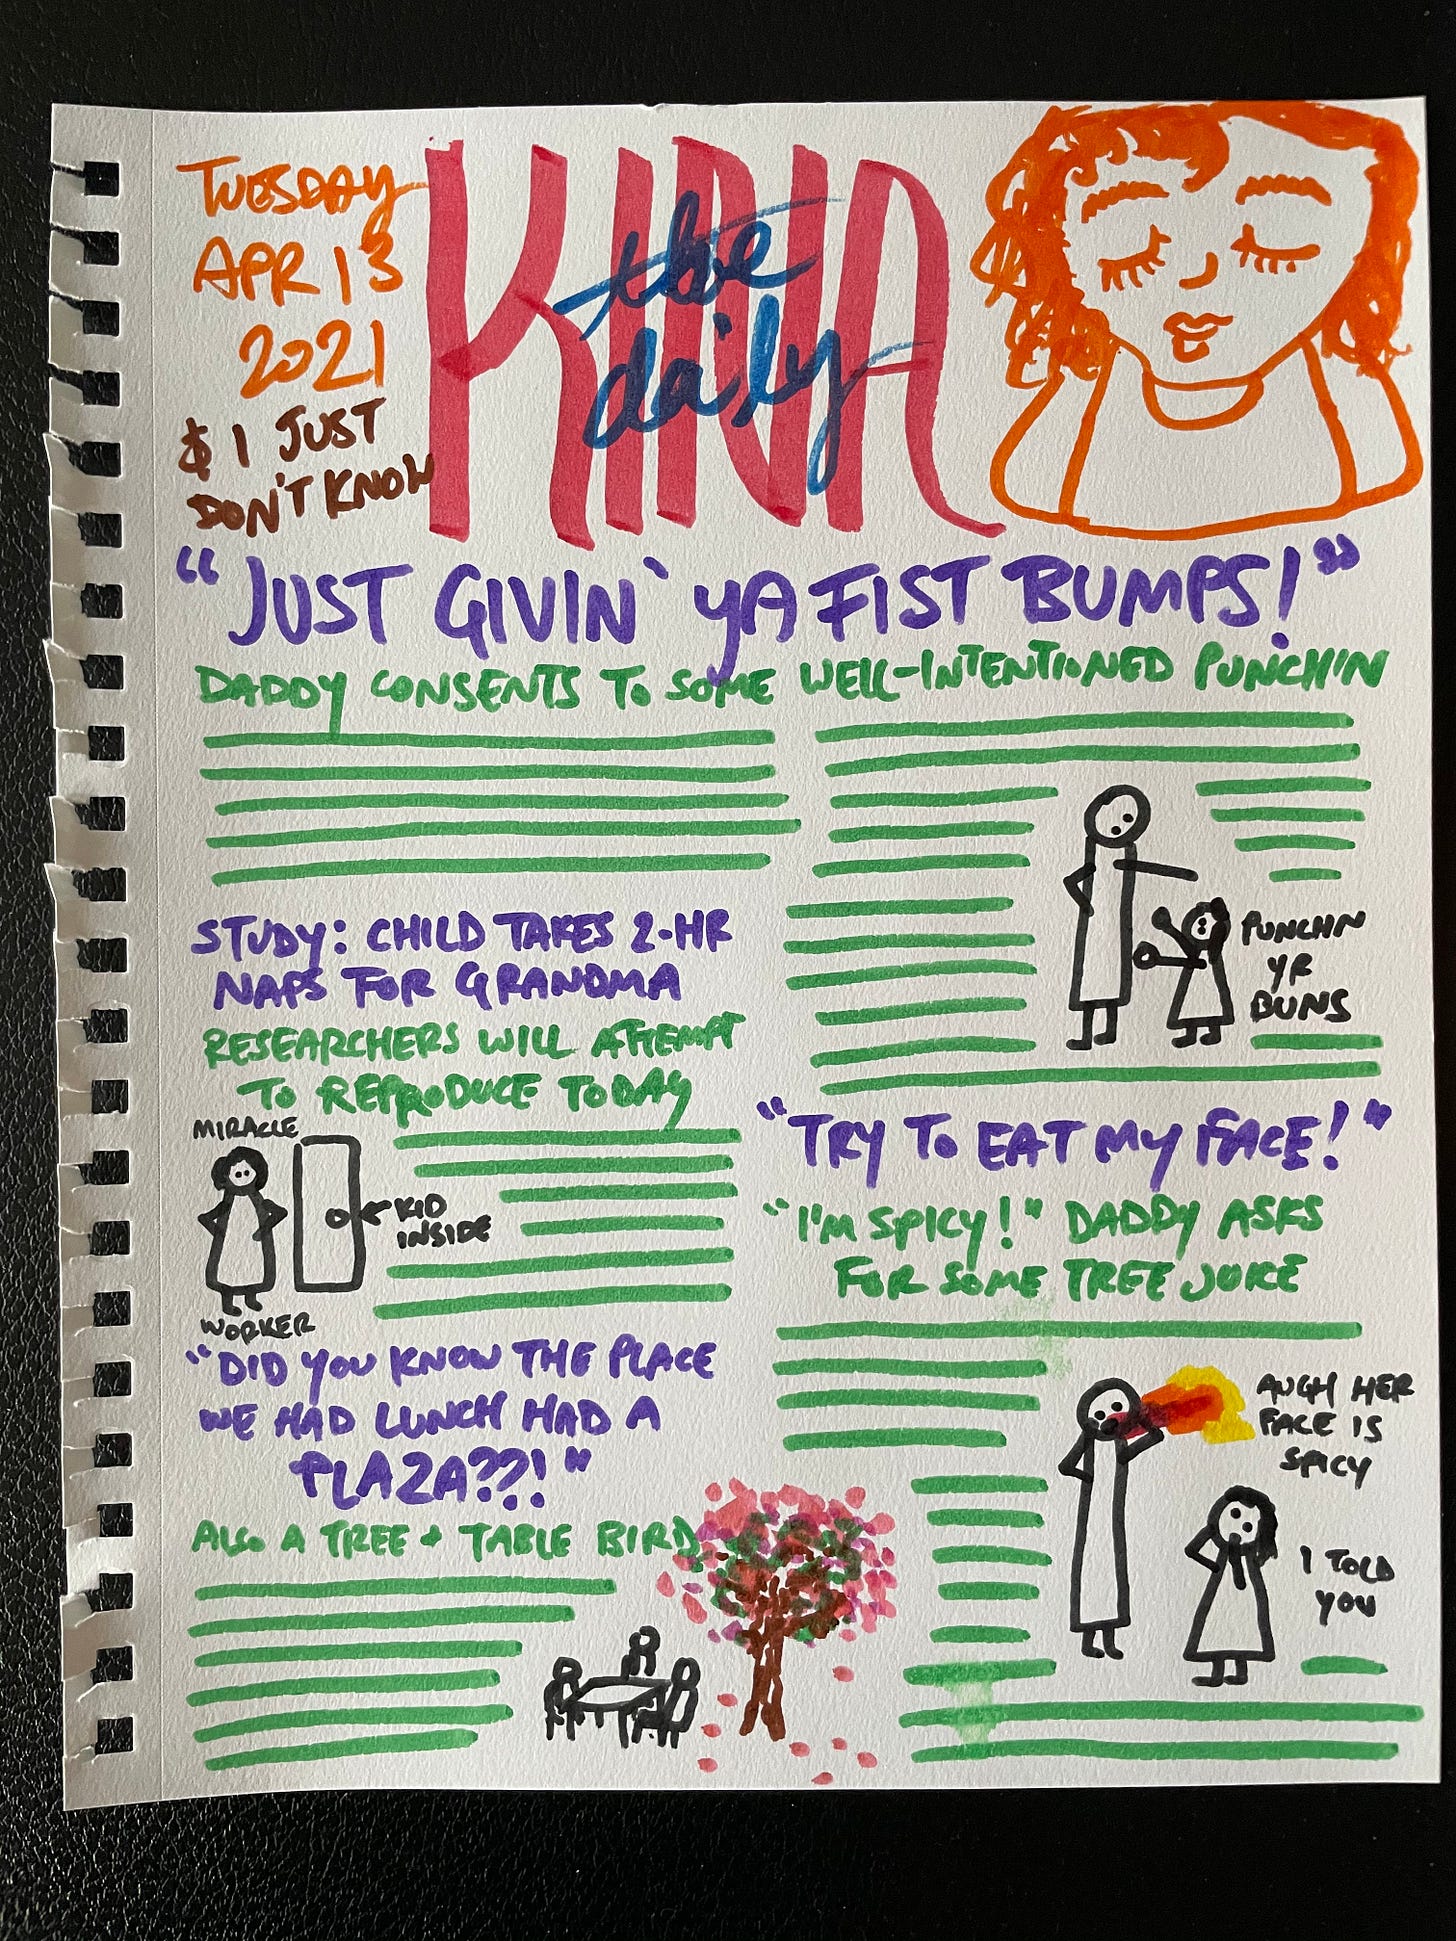 TUESDAY
APR 13
2021
$ I JUST
DON'T KNOW
the
daily
KINA
"JUST GIVIN' YA FIST BUMPS!"
DADDY CONSENTS TO SOME WELL-INTENTIONED PUNCHIN
PUNCHN
YR
BUNS
STUDY: CHILD TAKES 2-HR
NAPS FOR GRANDMA
RESEARCHERS WILL ATTEMPT
TO REPRODUCE TODAY
MIRACLE
KID
INSIDE
WORKER
"TRY TO EAT MY FACE!"
"I'M SPICY!" DADDY ASKS
FOR SOME TREE JUICE
AUGH HER
FACE IS
SPICY
I TOLD
YOU
"DID YOU KNOW THE PLACE
WE HAD LUNCH HAD A
PLAZA??!"
ALSO A TREE + TABLE BIRD